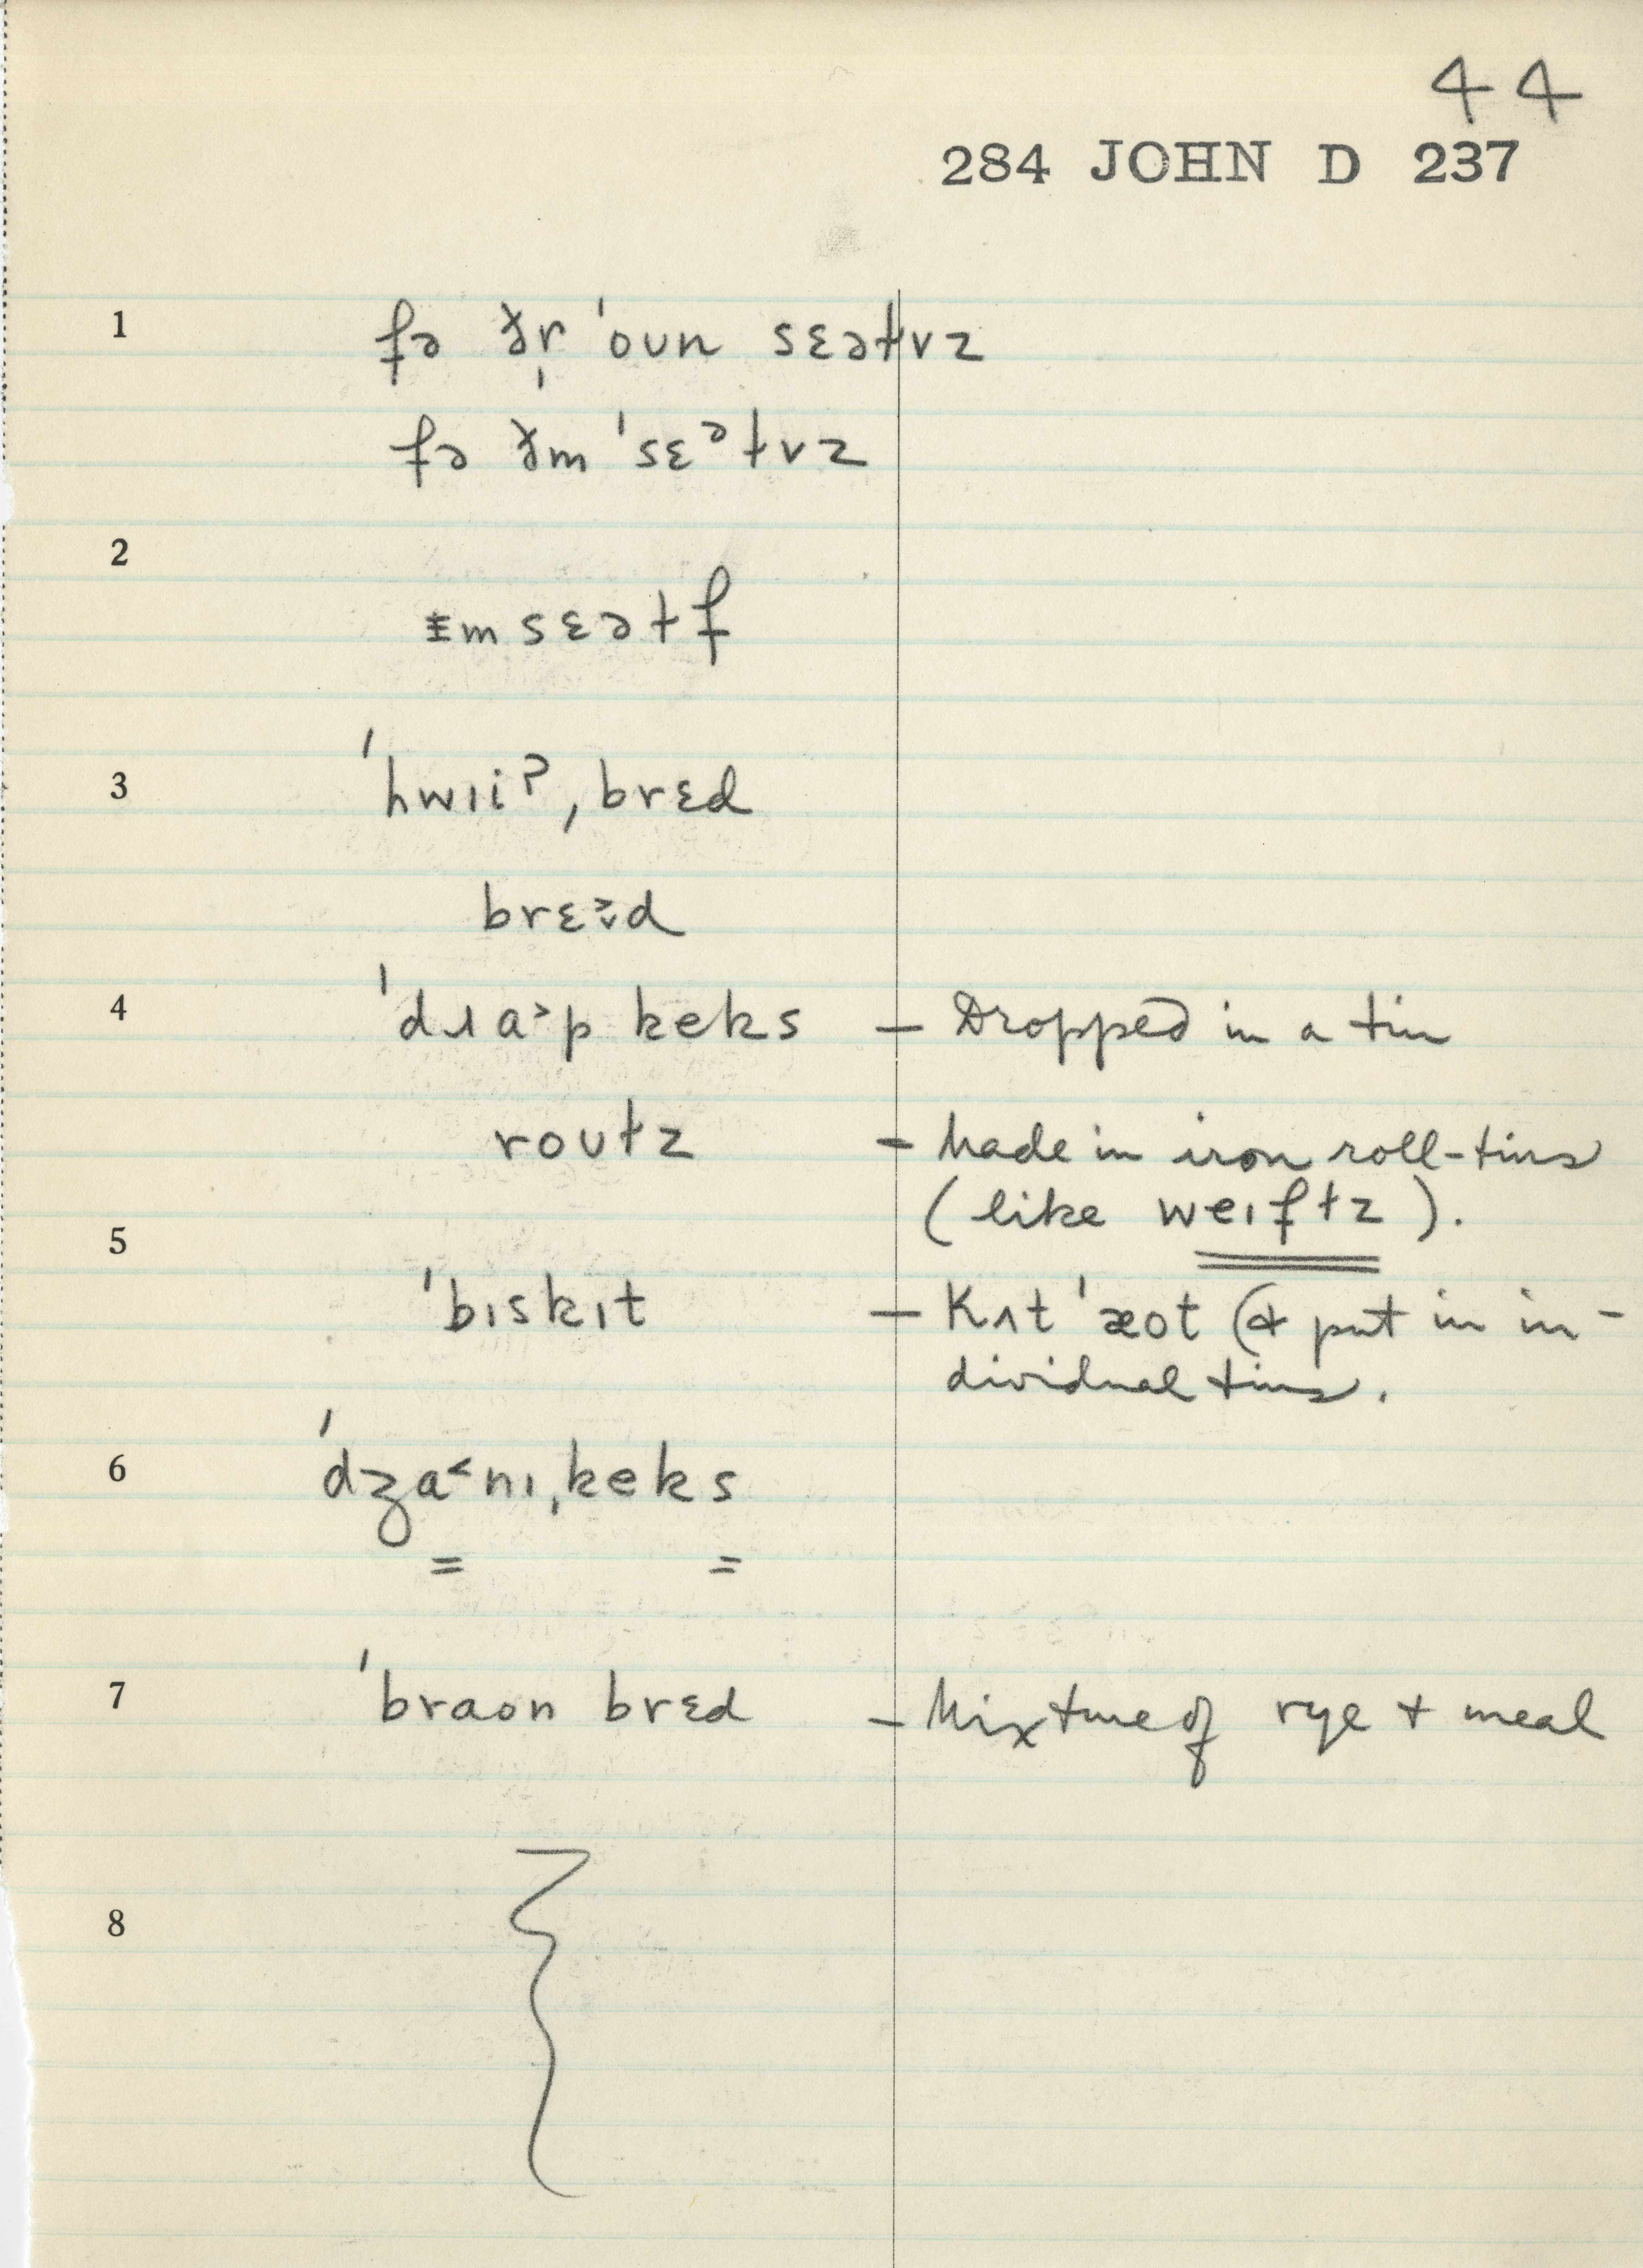 44
284 JOHN D 237
1 fə ðɚ ˈoʊn sɛəɫvz
fə ðm ˈsɛᵊɫvz
2
ɪmsɛəɫf
3 ˈhwɪiʔˌbrɛd
brɛɛ̌d
4 ˈdɹa˃p keks – Dropped in a tin
roʊɫz – Made in iron roll-tins
(like weɪfɫz).
5
ˈbɪskɪt – Kʌt ˈæot (& put in in-
dividual tins.
6 ˈdʒa˂nɪˌkeks
= =
7 ˈbraon brɛd – Mixture of rye + meal
8